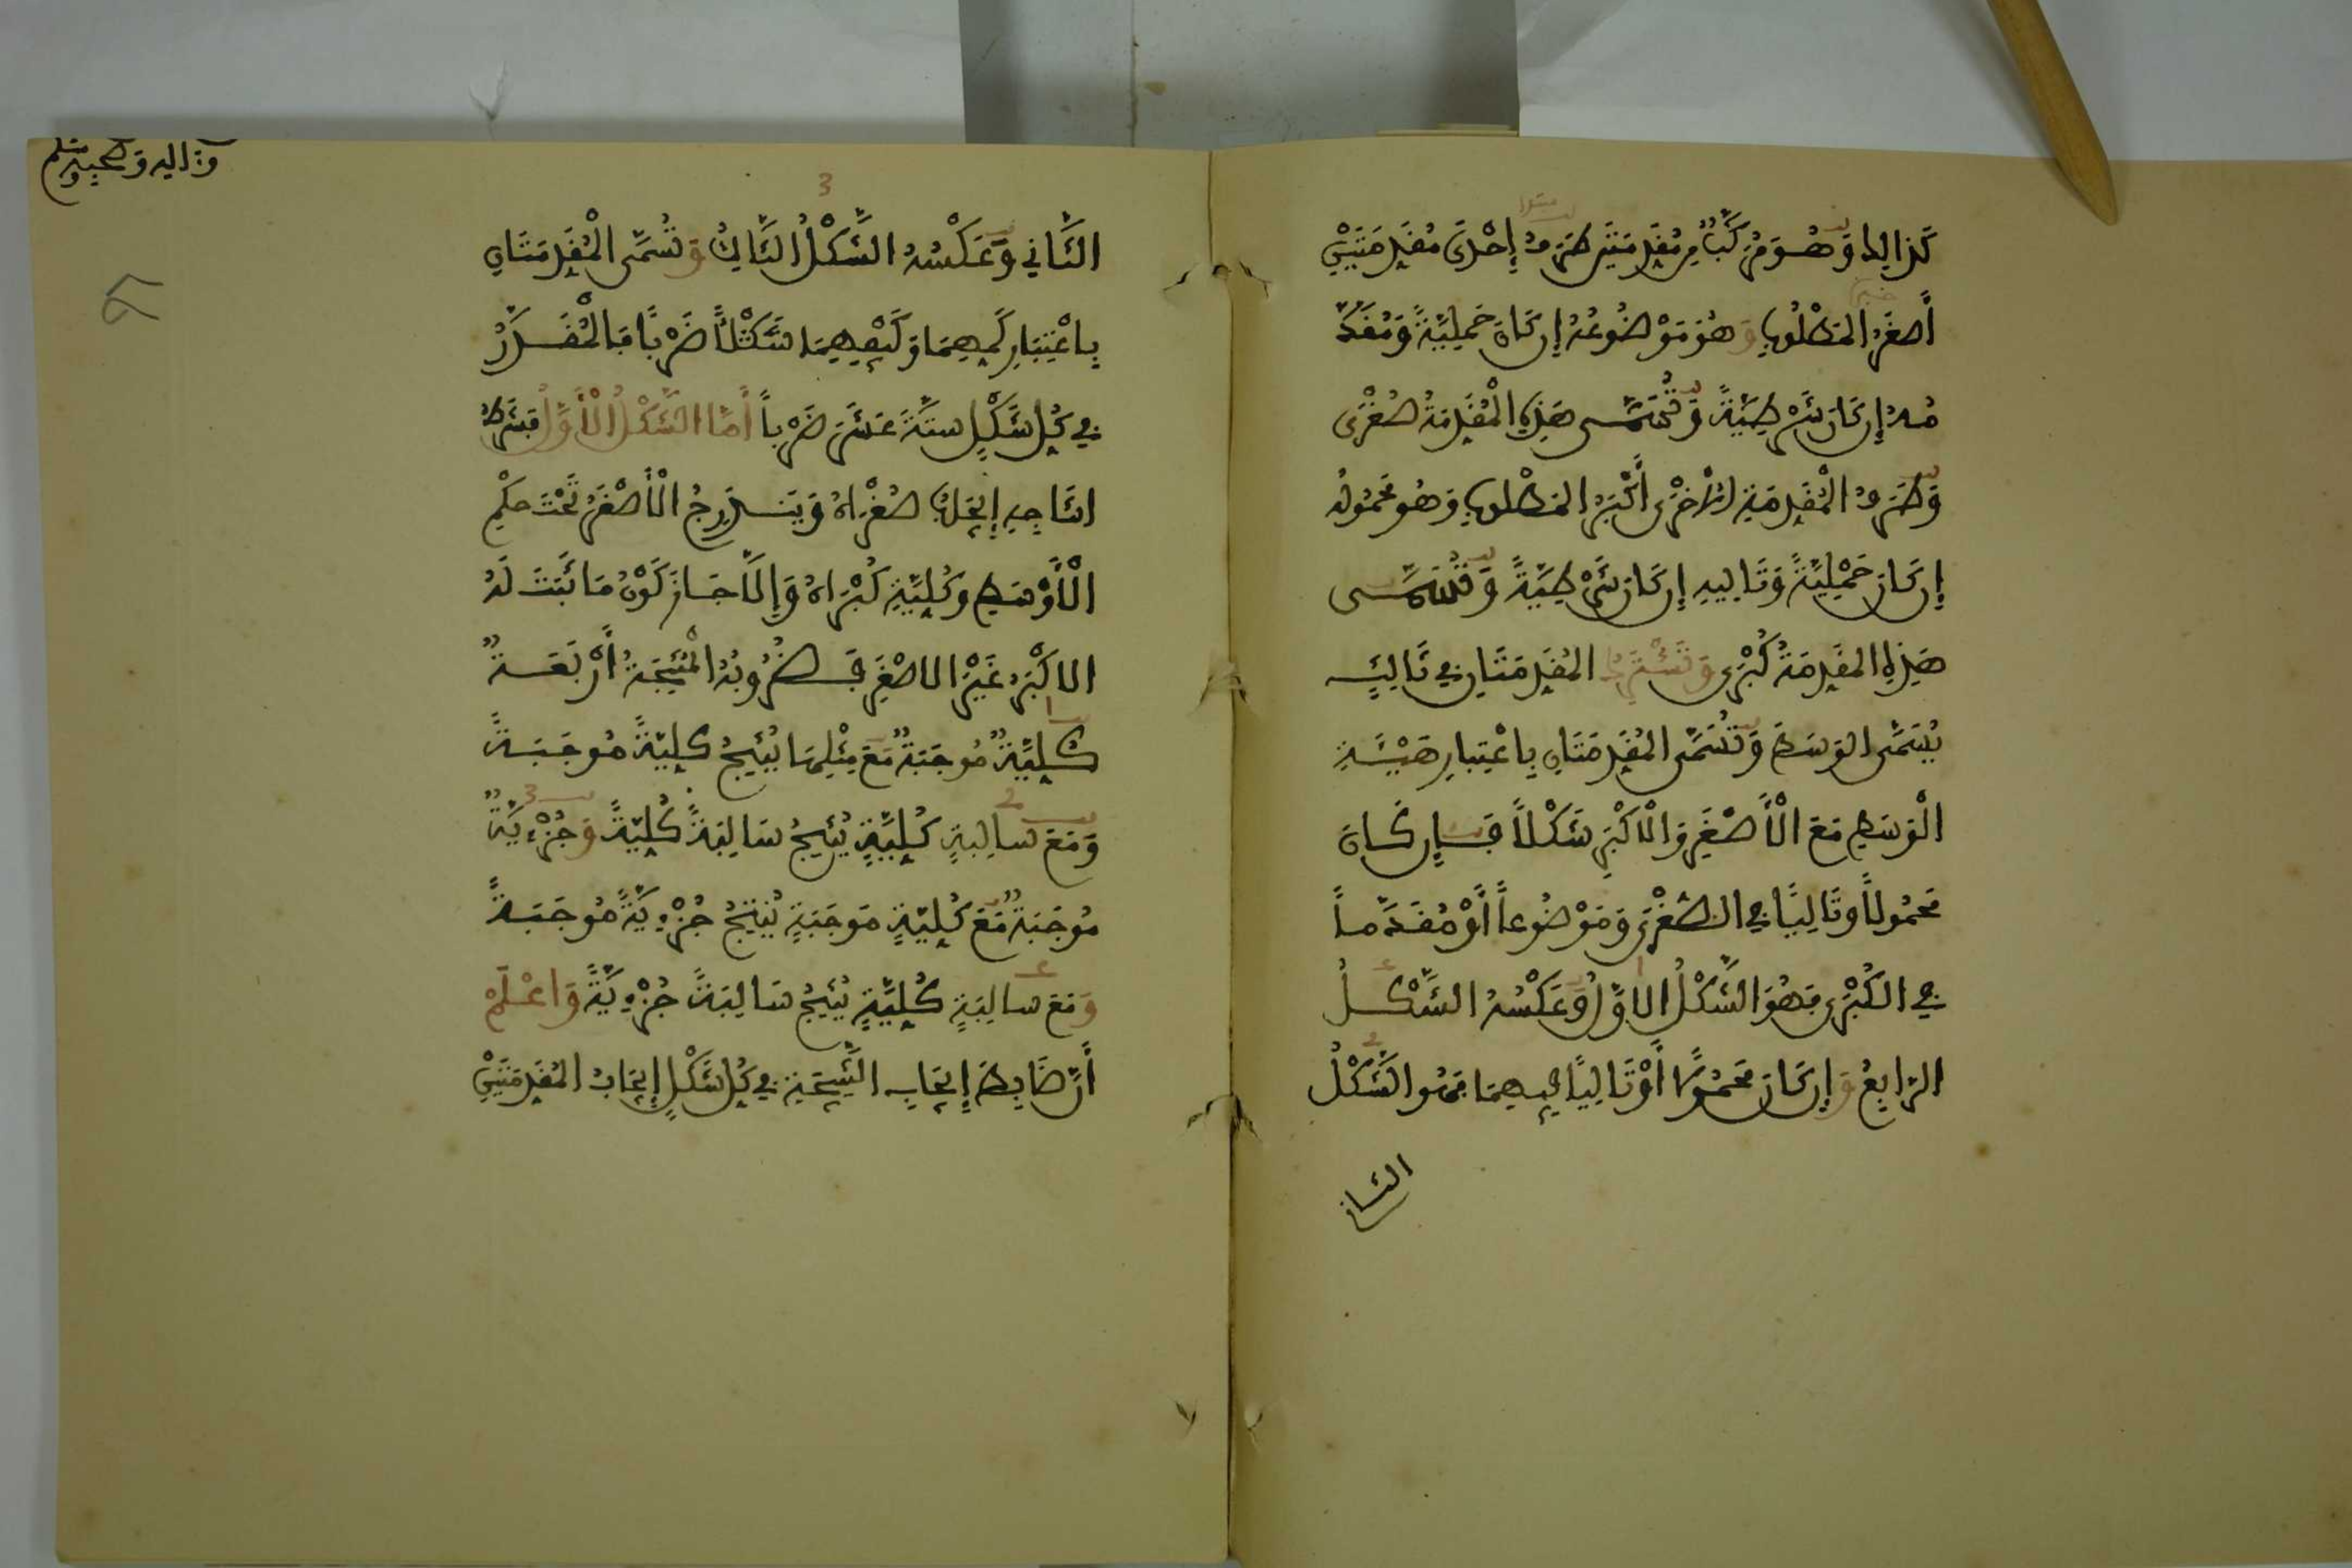 كذالك وَهُوَ مُرَكَّبٌ مِن مُقَدِّمَتَيْنِ طَرَفُ إِحْدَى مُقَدِّمَتَيْنِ
أَصْغَرُ المَطْلُوبِ وَهُوَ مَوْضُوعُهُ إِن كَانَ حَمْلِيَّةً وَمُقَدَّ
مُهُ إِن كَانَ شَرْطِيَّةً وَتُسَمَّى هَذِهِ الْمُقَدِّمَةُ صُغْرَى
وَطَرَفُ الْمُقَدِّمَةِ الْأُخْرَى أَكْبَرُ المَطْلُوبِ وَهُوَ مَحْمُولُهُ
إِن كَانَ حَمْلِيَّةً وَتَالِيهِ إِن كَانَ شَرْطِيَّةً وَتُسَمَّى
هَذِهِ المُقَدِّمَةُ كُبْرَى وَتَشْتَرِكُ المُقَدِّمَتَانِ فِي تَالِيَّهِ
يُسَمَّى الوَسَطَ وَتُسَمَّى المُقَدِّمَتَانِ بِاعْتِبَارِ هَيْئَةِ
الْوَسَطِ مَعَ الْأَصْغَرِ وَالْأَكْبَرِ شَكْلاً فَإِن كَانَ
مَحْمُولاً وَتَالِيًا فِي الصُّغْرَى وَمَوْضُوعاً أَوْ مُقَدَّماً
فِي الكُبْرَى فَهُوَ الشَّكْلُ الأَوَّلُ وَعَكْسُهُ الشَّكْلُ
الرَّابِعُ وَإِن كَانَ مَحْمُولًا أَوْ تَالِيًا فِيهِمَا فَهُوَ الشَّكْلُ
الثَّانِي
وَءَالِهِ وَصَحْبِهِ وَسَلَّمَ
3
الثَّانِي وَعَكْسُهُ الشَّكْلُ الثَّالِثُ وَتُسَمَّى الْمُقَدِّمَتَانِ
بِاعْتِبَارِ كَمِّهِمَا وَكَيْفِهِمَا شَكْلاً ضَرْبًا فَالْمُقَدَّرُ
فِي كُلِّ شَكْلٍ سِتَّةَ عَشَرَ ضَرْباً أَمَّا الشَّكْلُ الْأَوَّلُ فَشَرْطُ
إنتَاجِهِ إِيجَابُ صُغْرَاهُ وَيَنْدَرِجُ الْأَصْغَرُ تَحْتَ حُكْمِ
الْأَوْسَطِ وَكُلِّيَّةِ كُبْرَاهُ وَإِلَّا جَازَ كَوْنُ مَا ثَبَتَ لَهُ
الأَكْبَرُ غَيْرَ الأَصْغَرِ فَضُرُوبُهُ الْمُنْتِجَةُ أَرْبَعَةٌ
كُلِّيَّةٌ مُوجَبَةٌ مَعَ مِثْلِهَا يُنْتِجُ كُلِّيَّةً مُوجَبَةً
وَمَعَ سَالِبَةٍ كُلِّيَّةٍ يُنْتِجُ سَالِبَةً كُلِّيَّةً وَجُزْءِيَّةٌ
مُوجَبَةٌ مَعَ كُلِّيَّةٍ مُوجَبَةٍ يُنْتِجُ جُزْءِيَّةً مُوجَبَةً
وَمَعَ سَالِبَةٍ كُلِّيَّةٍ يُنْتِجُ سَالِبَةً جُزْءِيَّةً وَاعْلَمْ
أَنَّ ضَابِطَ إِيجَابِ النَّتِيجَةِ فِي كُلِّ شَكْلٍ إِيجَابُ المُقَدِّمَتَيْنِ